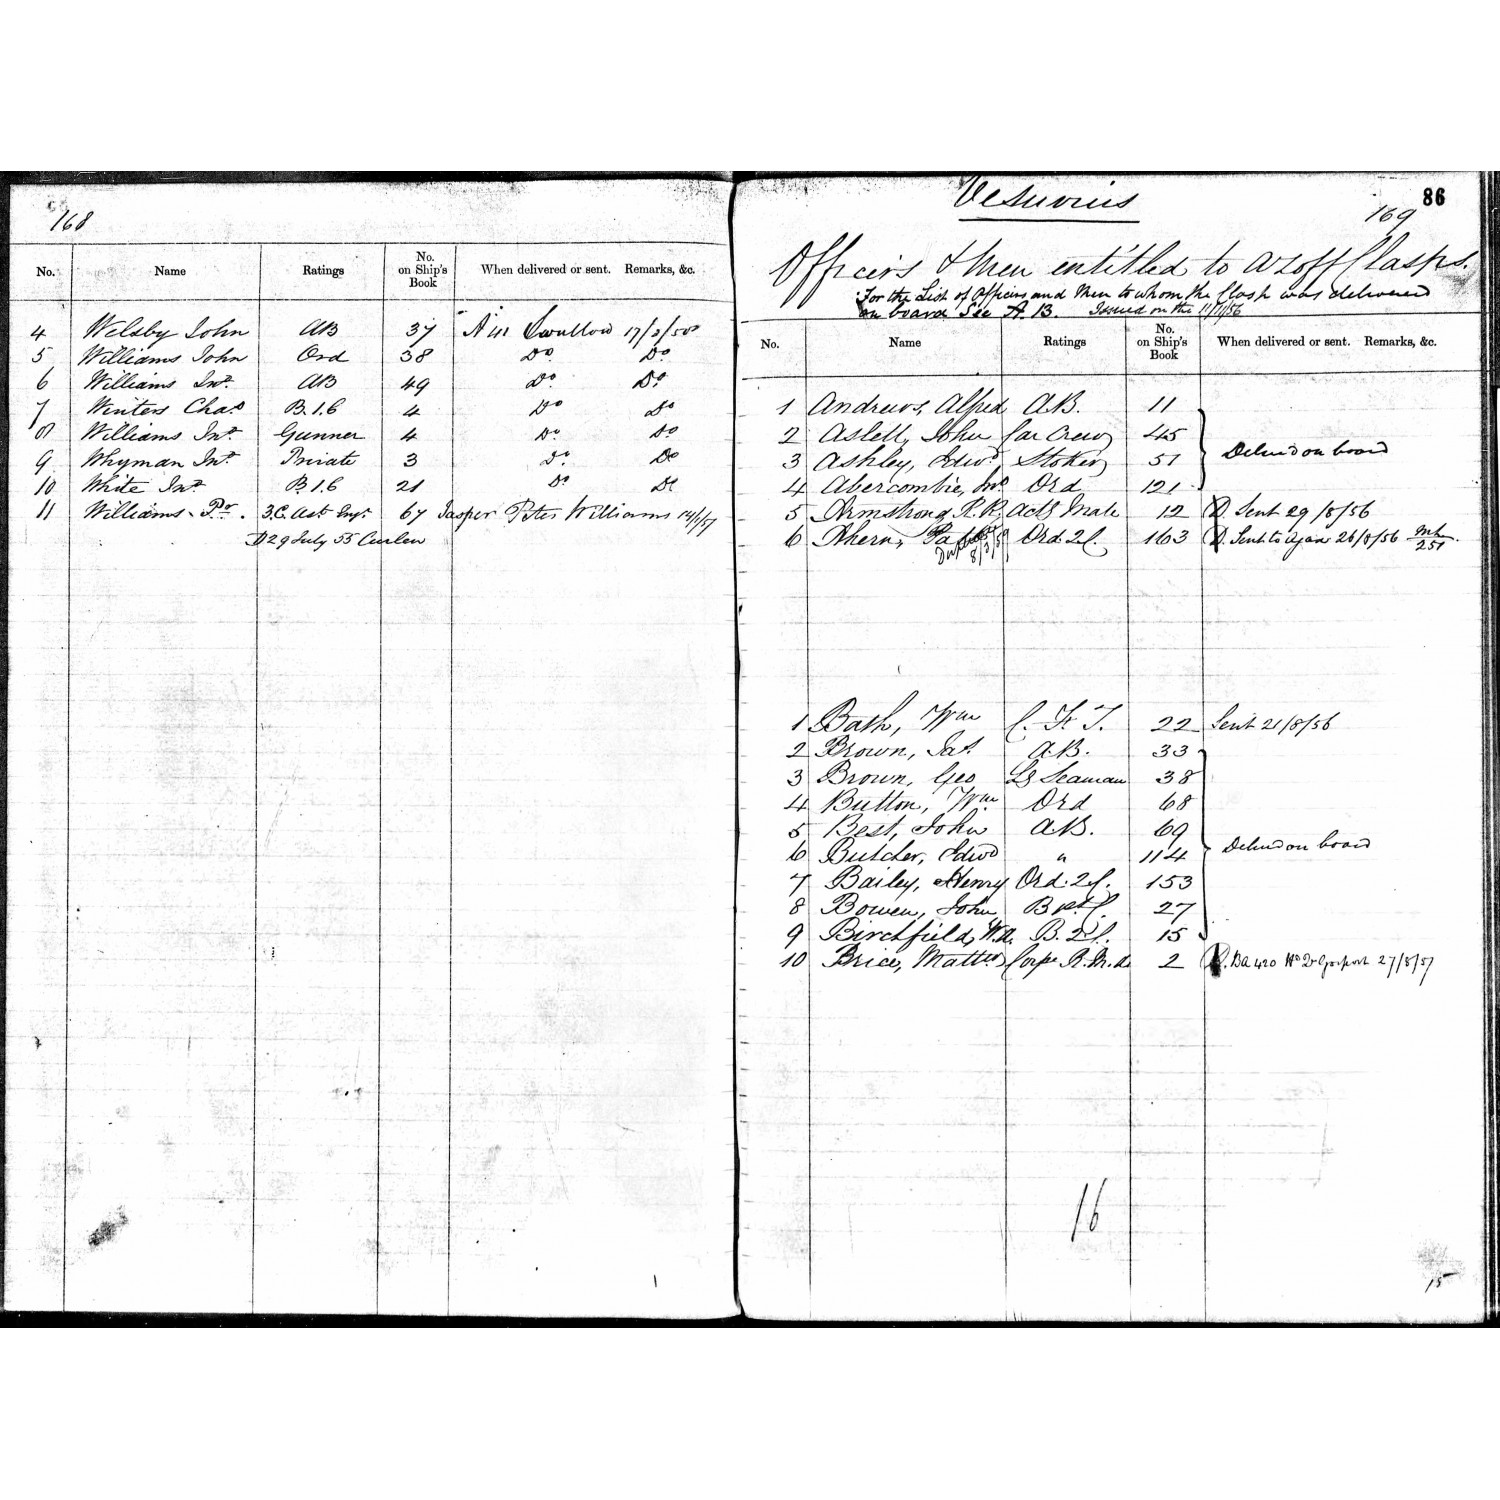 168
No. Name Ratings No. on Ship's Book When delivered or sent. Remarks, &c.
4 Welsby John AB 37 A 41 Swallow 17/3/58
5 Williams John Ord 38 Do Do
6 Williams Jno. AB 49 Do Do
7 Winters Chas B.1.C 4 Do Do
8 Williams Jno. Gunner 4 Do Do
9 Whyman Jno. Private 3 Do Do
10 White Jno. B.1.C 21 Do Do
11 Williams Pr. 3.C. Ast. Engr. 67 Jasper Peter Williams 14/1/57
D 29 July 55 Curlew
86
Vesuvius
169
Officers & Men entitled to Azoff Clasps.
For the List of Officers and Men to whom the Clasp was delivered
on board See A. 13. Issued on the 11/7/56
No. Name Ratings No. on Ship's Book When delivered or sent. Remarks, &c.
1 Andrews, Alfred A.B. 11
2 Aslett, John Car Crew 45
3 Ashley, Edwd. Stoker 51 Delivd on board
4 Abercombie, Jno Ord 121
5 Armstrong, R.R. Actg Mate 12 D. Sent 29/8/56
6 Ahern, Patk Ord 2C. 163 D. Sent to Ajax 26/8/56 251
8/3/59
1 Bash, Wm C. F. T. 22 Sent 21/8/56
2 Brown, Jas. A.B. 33
3 Brown, Geo Lg Seaman 38
4 Button, Wm. Ord 68
5 Best, John A.B. 69
6 Butcher, Edwd " 114 Delivd on board
7 Bailey, Henry Ord. 2C. 153
8 Bowen, John B 1st C. 27
9 Birchfield, Wm. B. 2C. 15
10 Brice, Mattw Corpl R.M.A. 2 D. DA 420 Hd Qr Gosport 27/8/57
16
15